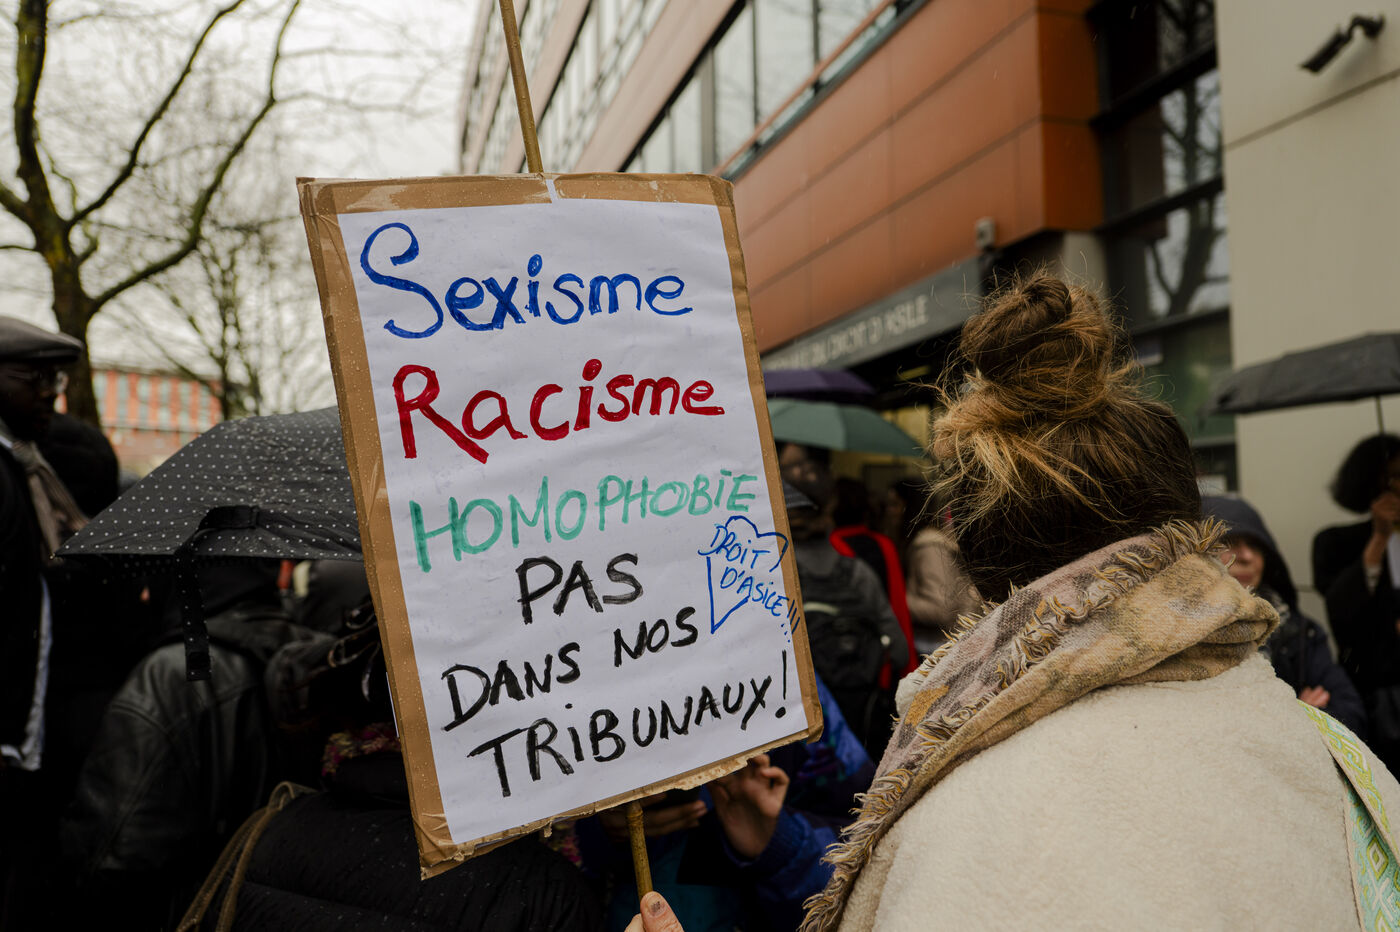 Sexisme
Racisme
HOMOPHOBIE
PAS
DANS NOS
TRIBUNAUX!
DROIT
D'ASILE!!!
DU DROIT D'ASILE